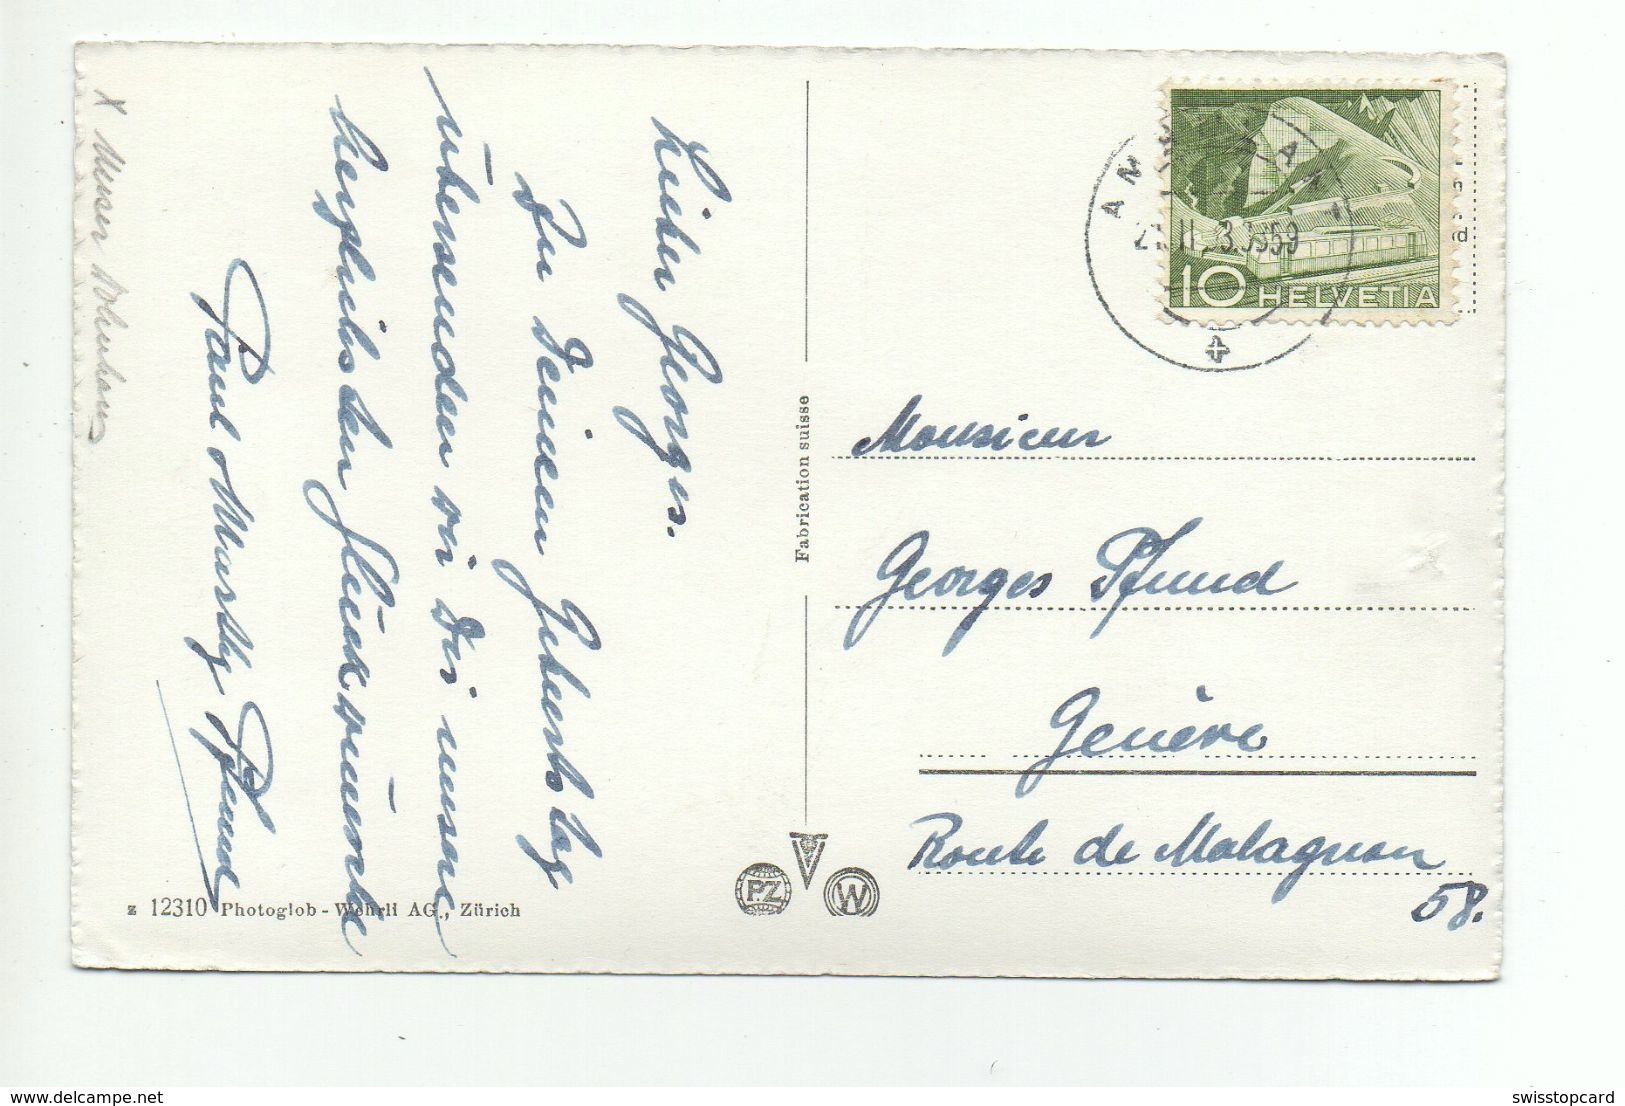 Lieber Georges.
Zu Deinem Geburtstag
übersenden wir Dir unsere
herzlichsten Glückwünsche
Paul & Marthy Pfund
x Unser Wohnhaus
z 12310 Photoglob - Wehrli AG., Zürich
Fabrication suisse
P.Z
W
1959
10 HELVETIA
Monsieur
Georges Pfund
Genève
Route de Malagnou
58.
delcampe.net
swisstopcard